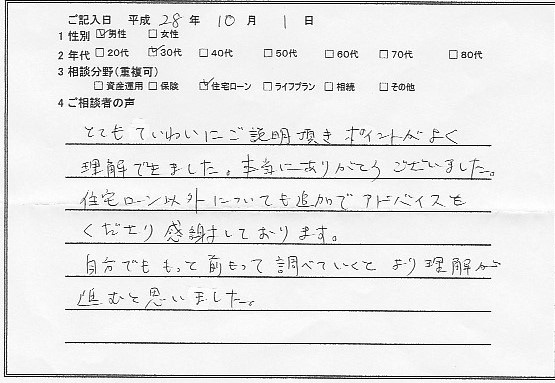 ご記入日 平成 28 年 10 月 1 日
1 性別 ☑男性 □女性
2 年代 □20代 ☑30代 □40代 □50代 □60代 □70代 □80代
3 相談分野(重複可)
□資産運用 □保険 ☑住宅ローン □ライフプラン □相続 □その他
4 ご相談者の声
とてもていねいにご説明頂き ポイントがよく
理解できました。本当にありがとうございました。
住宅ローン以外についても追加でアドバイスを
くださり感謝しております。
自分でももって前もって調べていくと より理解が
進むと思いました。